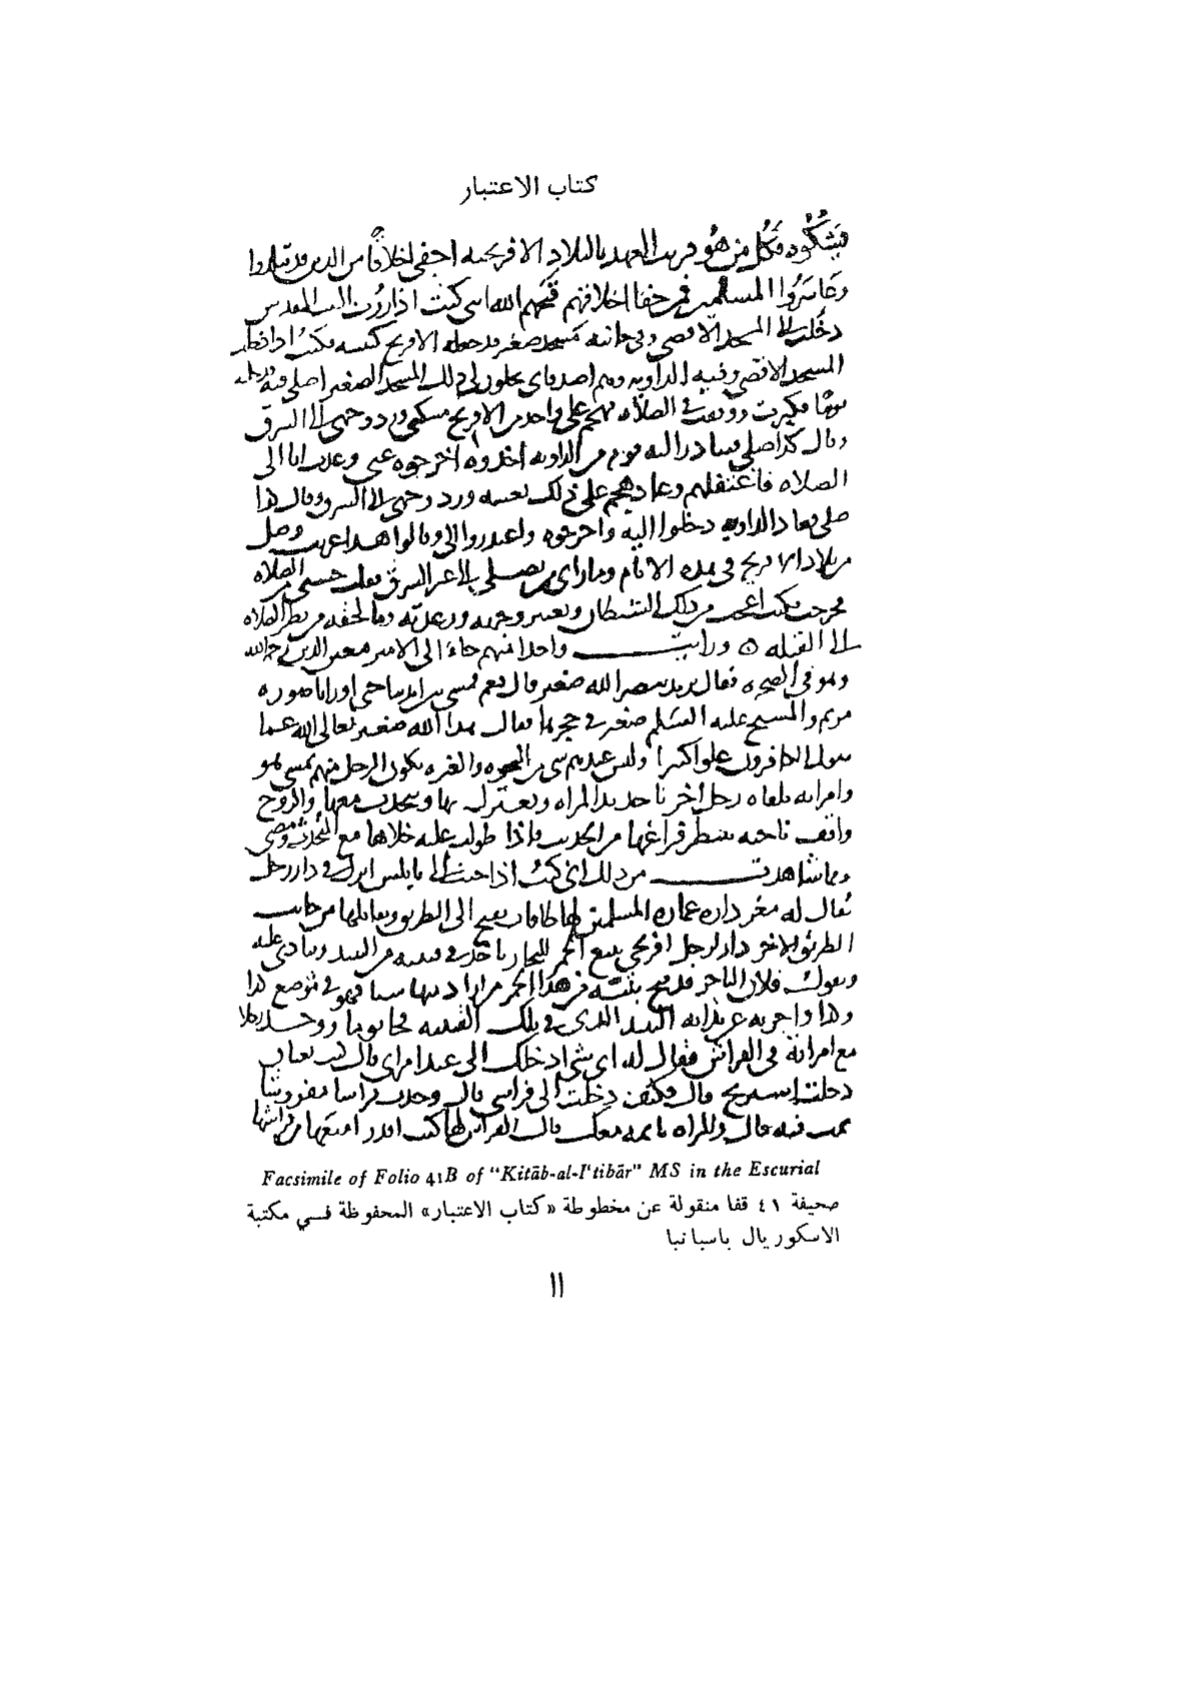 كتاب الاعتبار
فيشكوه فكل من هو قريب العهد بالبلاد الافرنجيه اجفى اخلاقا من الذين قد تبلدوا
وعاشروا المسلمين فمن جفا اخلاقهم قبحهم الله انني كنت اذا زرت البيت المقدس
دخلت الى المسجد الاقصى وفي جانبه مسجد صغير قد جعله الافرنج كنيسه فكنت اذا دخلت
المسجد الاقصى وفيه الداويه وهم اصدقاي يخلون لي ذلك المسجد الصغير اصلي فيه فدخلته
يوما فكبرت ووقفت في الصلاه فهجم علي واحد من الافرنج مسكني ورد وجهي الى الشرق
وقال كذا صلي فبادر اليه قوم من الداويه اخذوه اخرجوه عني وعدت انا الى
الصلاه فاغتفلهم وعاد هجم علي ذلك بعينه ورد وجهي الى الشرق وقال كذا
صلي فعاد الداويه دخلوا اليه واخرجوه واعتذروا الي وقالوا هذا غريب وصل
من بلاد الافرنج في هذه الايام وما راى من يصلي الى غير الشرق فقلت حسبي من الصلاه
فخرجت فكنت اعجب من ذلك الشيطان وتغيير وجهه ورعدته وما لحقه من نظر الصلاه
الى القبله ٥ ورايت واحدا منهم جاء الى الامير معين الدين رحمه الله
وهو في الصخره فقال تريد تبصر الله صغير قال نعم فمشى بين ايدينا حتى اورانا صوره
مريم والمسيح عليه السلم صغير في حجرها فقال هذا الله صغير تعالى الله عما
يقول الكافرون علوا كبيرا وليس عندهم شي من النخوه والغيره يكون الرجل منهم يمشي هو
وامراته يلقاه رجل اخر ياخذ بيد المراه ويعتزل بها ويتحدث معها والزوج
واقف ناحيه ينتظر فراغها من الحديث فاذا طولت عليه خلاها مع المتحدث ومضى
ومما شاهدت من ذلك اني كنت اذا جيت الى نابلس انزل في دار رجل
يقال له معز داره عماره المسلمين لها طاقات تفتح الى الطريق ويقابلها من جانب
الطريق الاخر دار لرجل افرنجي يبيع الخمر للتجار ياخذ في قنينه من النبيذ وينادي عليه
ويقول فلان التاجر قد فتح بتيه من هذا الخمر من اراد منها شيا فهو في موضع كذا
وكذا واجرته عن ندايه النبيذ الذي في تلك القنينه فجا يوما ووجد رجلا
مع امراته في الفراش فقال له اي شي ادخلك الى عند امراتي قال كنت تعبان
دخلت استريح قال فكيف دخلت الى فراشي قال وجدت فراشا مفروشا
نمت فيه قال والمراه نايمه معك قال الفراش لها كنت اقدر امنعها من فراشها
Facsimile of Folio 41B of "Kitāb-al-I'tibār" MS in the Escurial
صحيفة ٤١ قفا منقولة عن مخطوطة «كتاب الاعتبار» المحفوظة فسي مكتبة
الاسكوريال باسبانيا
١١